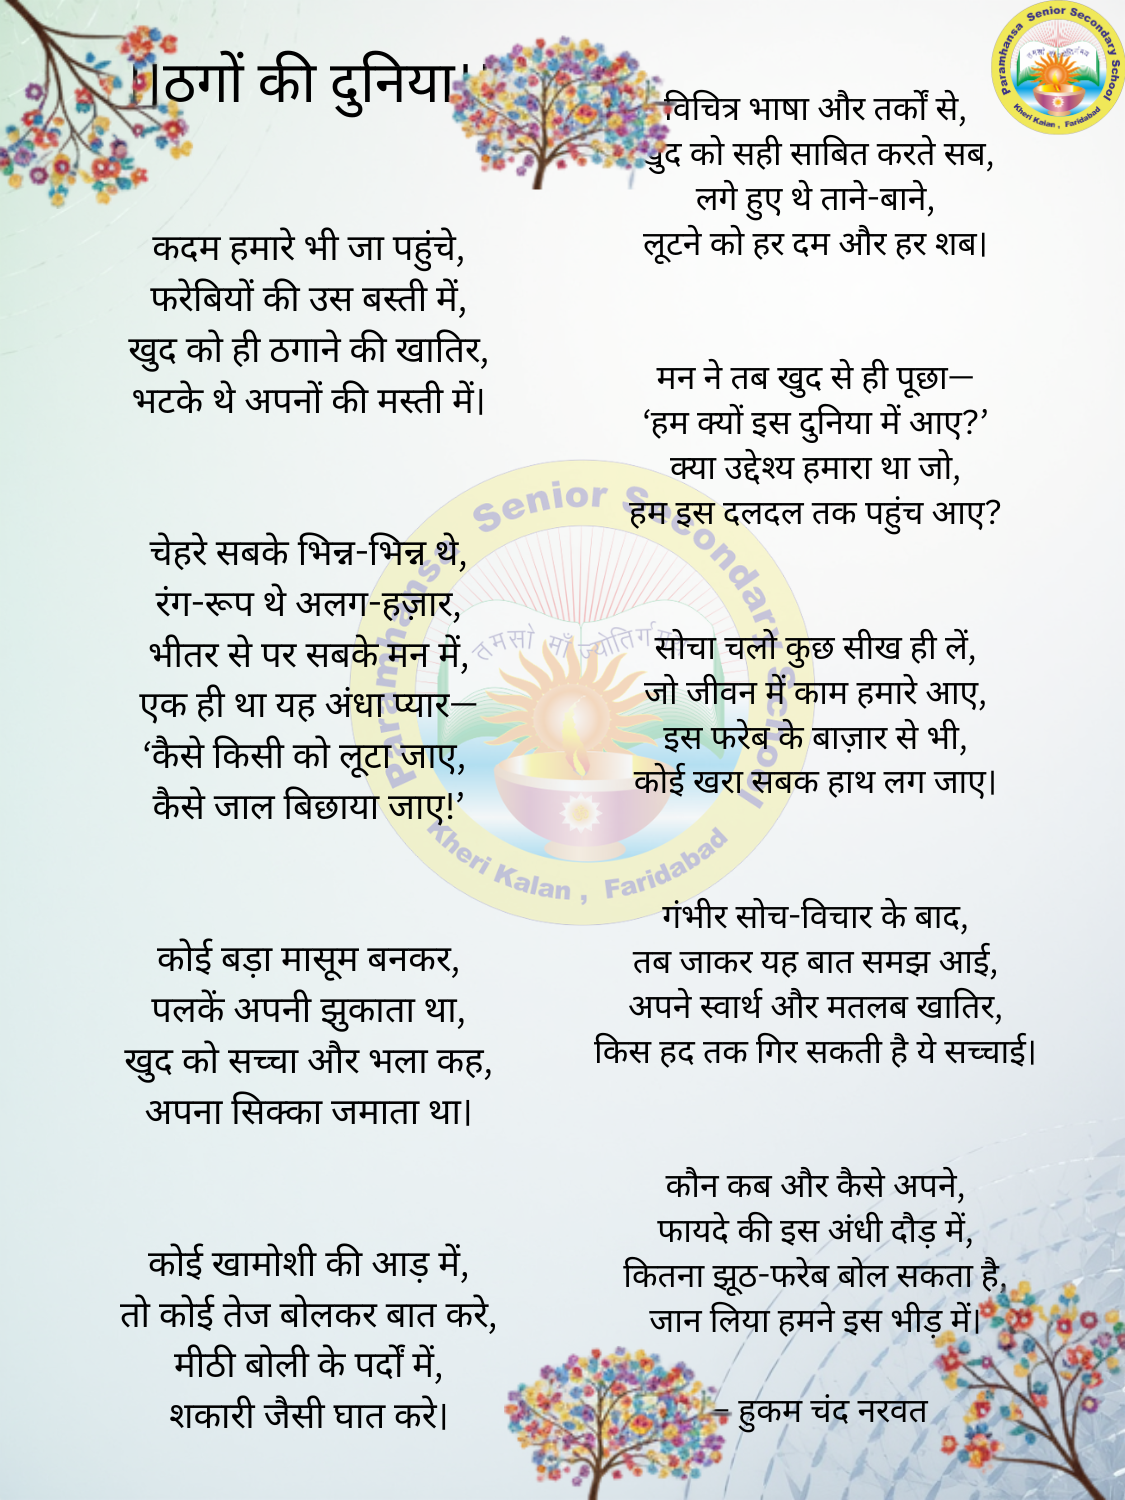 ||ठगों की दुनिया||
कदम हमारे भी जा पहुंचे,
फरेबियों की उस बस्ती में,
खुद को ही ठगाने की खातिर,
भटके थे अपनों की मस्ती में।
चेहरे सबके भिन्न-भिन्न थे,
रंग-रूप थे अलग-हज़ार,
भीतर से पर सबके मन में,
एक ही था यह अंधा प्यार—
‘कैसे किसी को लूटा जाए,
कैसे जाल बिछाया जाए!’
कोई बड़ा मासूम बनकर,
पलकें अपनी झुकाता था,
खुद को सच्चा और भला कह,
अपना सिक्का जमाता था।
कोई खामोशी की आड़ में,
तो कोई तेज बोलकर बात करे,
मीठी बोली के पर्दों में,
शकारी जैसी घात करे।
विचित्र भाषा और तर्कों से,
खुद को सही साबित करते सब,
लगे हुए थे ताने-बाने,
लूटने को हर दम और हर शब।
मन ने तब खुद से ही पूछा—
‘हम क्यों इस दुनिया में आए?’
क्या उद्देश्य हमारा था जो,
हम इस दलदल तक पहुंच आए?
सोचा चलो कुछ सीख ही लें,
जो जीवन में काम हमारे आए,
इस फरेब के बाज़ार से भी,
कोई खरा सबक हाथ लग जाए।
गंभीर सोच-विचार के बाद,
तब जाकर यह बात समझ आई,
अपने स्वार्थ और मतलब खातिर,
किस हद तक गिर सकती है ये सच्चाई।
कौन कब और कैसे अपने,
फायदे की इस अंधी दौड़ में,
कितना झूठ-फरेब बोल सकता है,
जान लिया हमने इस भीड़ में।
– हुकम चंद नरवत
Paramhansa Senior Secondary School
Kheri Kalan , Faridabad
Paramhansa Senior Secondary School
तमसो माँ ज्योतिर्गमय
Kheri Kalan , Faridabad